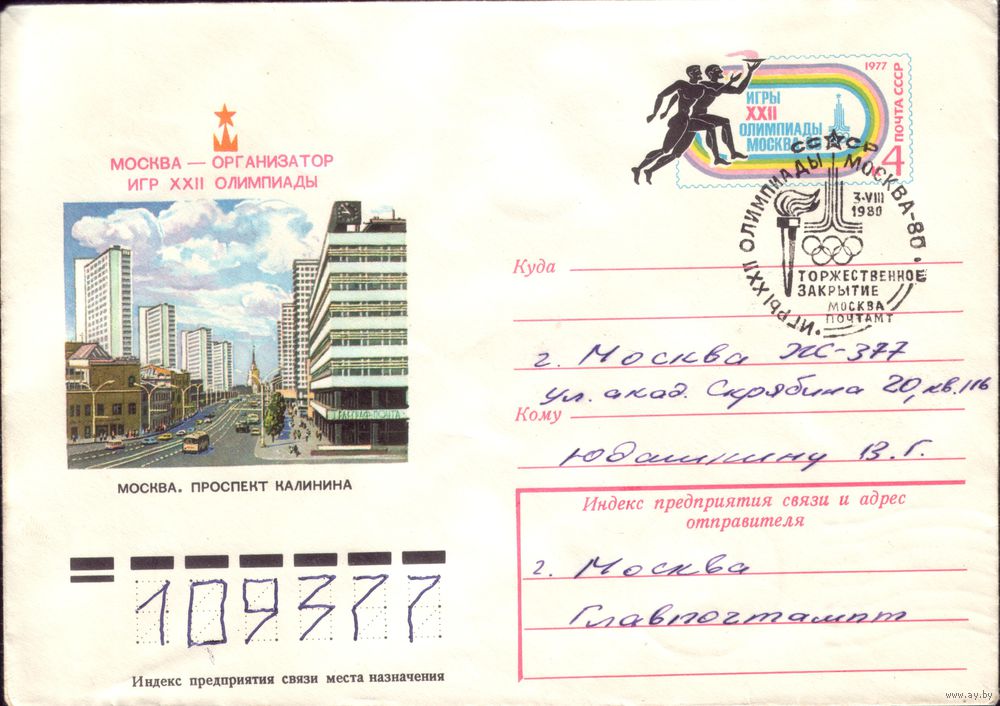 МОСКВА — ОРГАНИЗАТОР
ИГР XXII ОЛИМПИАДЫ
МОСКВА. ПРОСПЕКТ КАЛИНИНА
109377
Индекс предприятия связи места назначения
1977
ИГРЫ
XXII
ОЛИМПИАДЫ
МОСКВА
ПОЧТА СССР
4
СССР
ИГРЫ XXII ОЛИМПИАДЫ МОСКВА-80
3·VIII
1980
ТОРЖЕСТВЕННОЕ
ЗАКРЫТИЕ
МОСКВА
ПОЧТАМТ
Куда
г. Москва Ж-377
ул. акад. Скрябина 20, кв. 116
Кому
Юдашкину В. Г.
Индекс предприятия связи и адрес
отправителя
г. Москва
Главпочтампт
www.ay.by